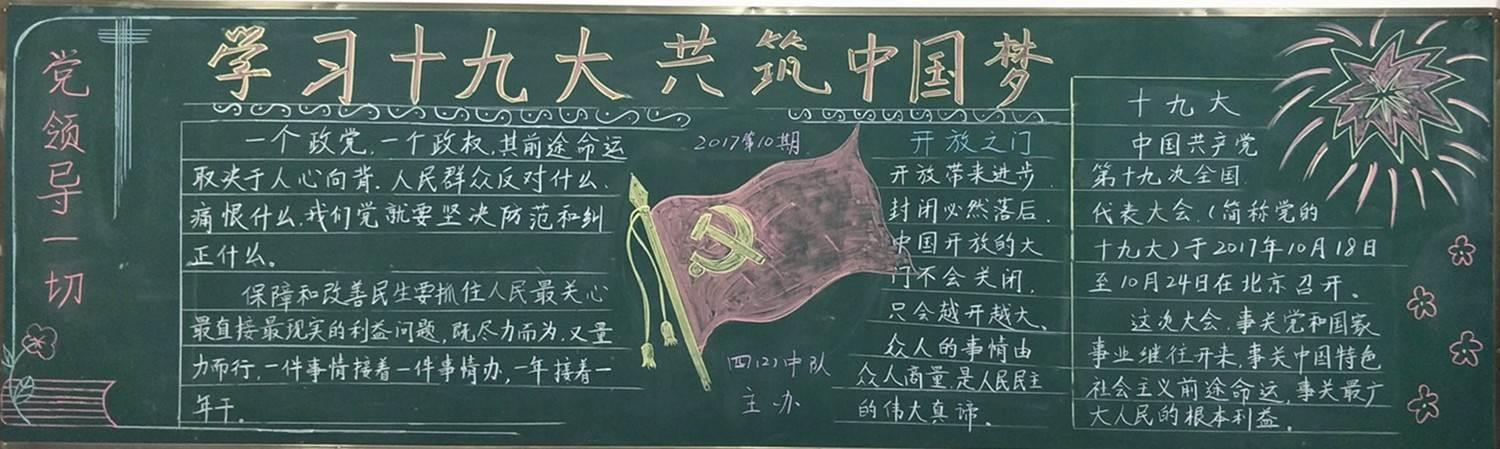 学习十九大 共筑中国梦
党领导一切
一个政党，一个政权，其前途命运
取决于人心向背，人民群众反对什么、
痛恨什么，我们党就要坚决防范和纠
正什么。
保障和改善民生要抓住人民最关心
最直接最现实的利益问题，既尽力而为，又量
力而行，一件事情接着一件事情办，一年接着一
年干。
2017第10期
四（2）中队
主办
开放之门
开放带来进步，
封闭必然落后，
中国开放的大
门不会关闭，
只会越开越大、
众人的事情由
众人商量，是人民民主
的伟大真谛。
十九大
中国共产党
第十九次全国
代表大会，（简称党的
十九大）于2017年10月18日
至10月24日在北京召开。
这次大会，事关党和国家
事业继往开来，事关中国特色
社会主义前途命运，事关最广
大人民的根本利益。